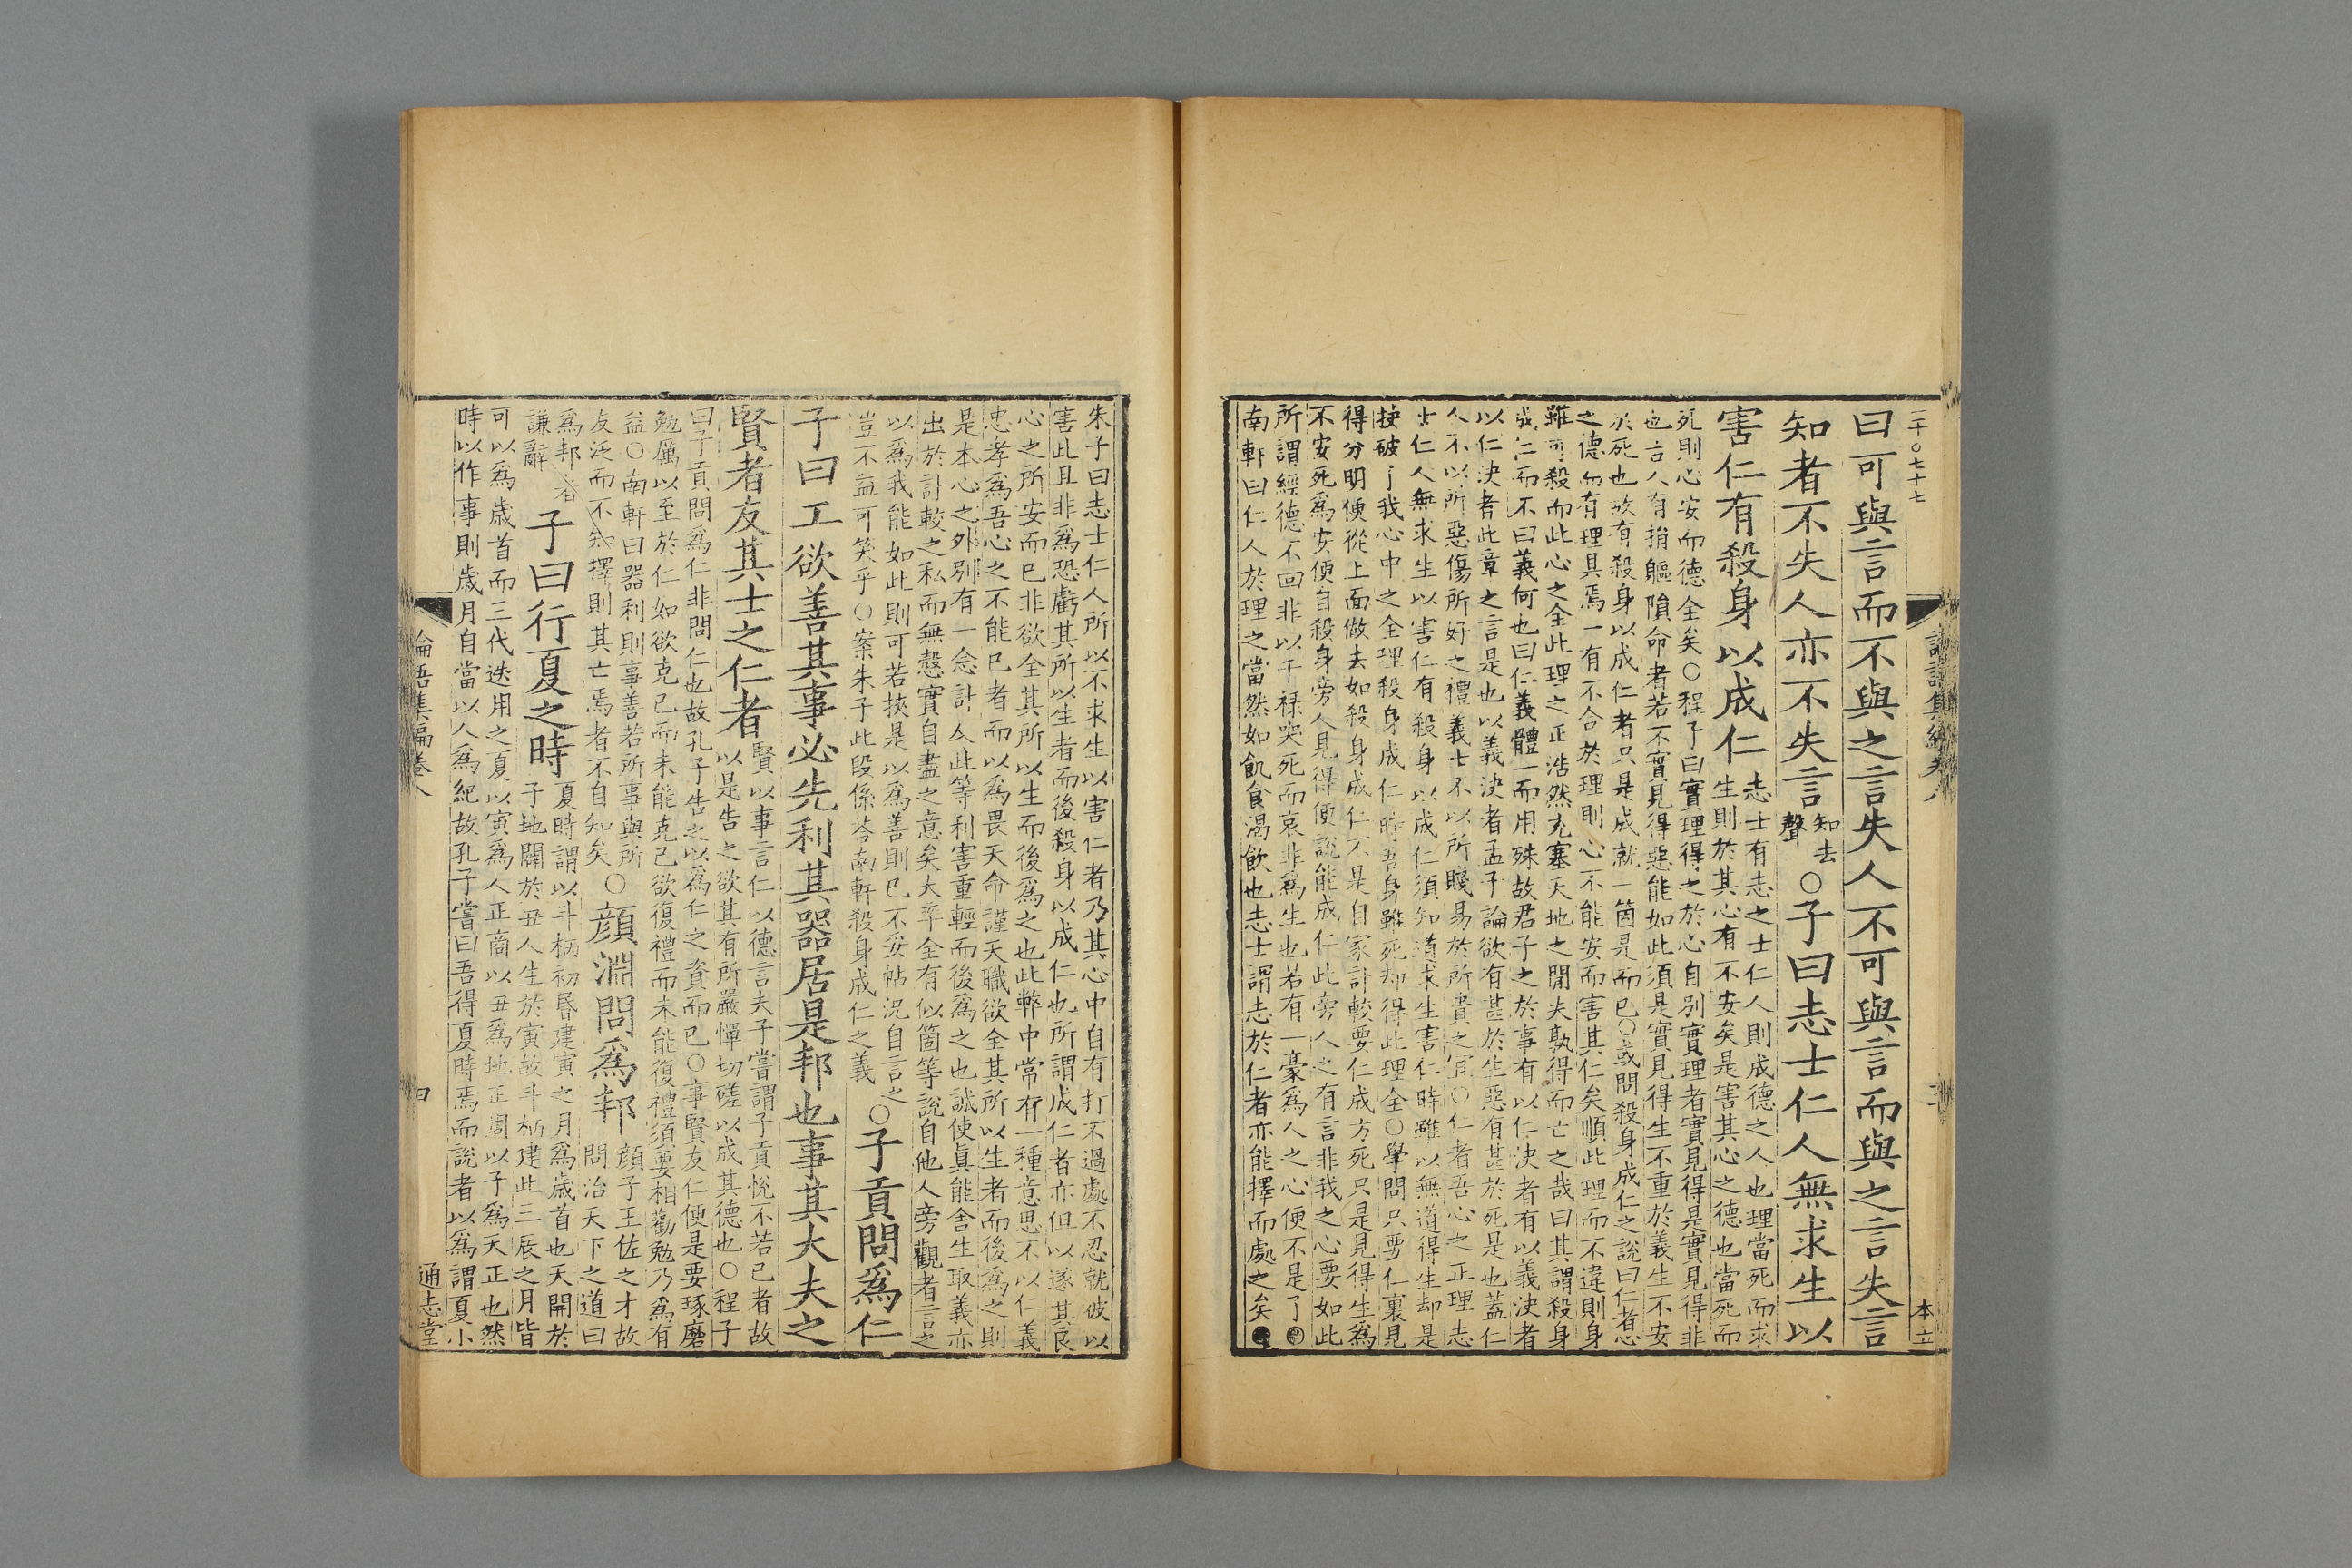 二千〇七十七
曰可與言而不與之言失人不可與言而與之言失言
知者不失人亦不失言
知去
聲
〇子曰志士仁人無求生以
害仁有殺身以成仁
志士有志之士仁人則成德之人也理當死而求
生則於其心有不安矣是害其心之德也當死而
死則心安而德全矣〇程子曰實理得之於心自別實理者實見得是實見得非
也古人有捐軀隕命者若不實見得惡能如此須是實見得生不重於義生不安
於死也故有殺身以成仁者只是成就一箇是而已〇或問殺身成仁之說曰仁者心
之德而有理具焉一有不合於理則心不能安而害其仁矣順此理而不違則身
雖可殺而此心之全此理之正浩然充塞天地之閒夫孰得而亡之哉曰其謂殺身
成仁而不曰義何也曰仁義體一而用殊故君子之於事有以仁決者有以義決者
以仁決者此章之言是也以義決者孟子論欲有甚於生惡有甚於死是也蓋仁
人不以所惡傷所好之禮義士不以所賤易於所貴之宜〇仁者吾心之正理志
士仁人無求生以害仁有殺身以成仁須知道求生害仁時雖以無道得生却是
抉破了我心中之全理殺身成仁時吾身雖死却得此理全〇學問只要仁裏見
得分明便從上面做去如殺身成仁不是自家計較要仁成方死只是見得生爲
不安死爲安便自殺身旁人見得便說能成仁此旁人之有言非我之心要如此
所謂經德不回非以干禄哭死而哀非爲生也若有一豪爲人之心便不是了
南軒曰仁人於理之當然如飢食渴飲也志士謂志於仁者亦能擇而處之矣
本立
朱子曰志士仁人所以不求生以害仁者乃其心中自有打不過處不忍就彼以
害此且非爲恐虧其所以生者而後殺身以成仁也所謂成仁者亦但以遂其良
心之所安而已非欲全其所以生而後爲之也此弊中常有一種意思不以仁義
忠孝爲吾心之不能已者而以爲畏天命謹天職欲全其所以生者而後爲之則
是本心之外別有一念計人此等利害重輕而後爲之也誠使眞能舍生取義亦
出於計較之私而無慤實自盡之意矣大率全有似箇等說自他人旁觀者言之
以爲我能如此則可若挾是以爲善則已不妥帖況自言之
豈不益可笑乎〇案朱子此段係荅南軒殺身成仁之義
〇子貢問爲仁
子曰工欲善其事必先利其器居是邦也事其大夫之
賢者友其士之仁者
賢以事言仁以德言夫子嘗謂子貢悅不若已者故
以是告之欲其有所嚴憚切磋以成其德也〇程子
曰子貢問爲仁非問仁也故孔子告之以爲仁之資而已〇事賢友仁便是要琢磨
勉厲以至於仁如欲克已而未能克已欲復禮而未能復禮須要相勸勉乃爲有
益〇南軒曰器利則事善若所事與所
友泛而不知擇則其亡焉者不自知矣
〇顔淵問爲邦
顔子王佐之才故
問治天下之道曰
爲邦者
謙辭
子曰行夏之時
夏時謂以斗柄初昏建寅之月爲歲首也天開於
子地闢於丑人生於寅故斗柄建此三辰之月皆
可以爲歲首而三代迭用之夏以寅爲人正商以丑爲地正周以子爲天正也然
時以作事則歲月自當以人爲紀故孔子嘗曰吾得夏時焉而說者以爲謂夏小
論語集編卷八
四
通志堂